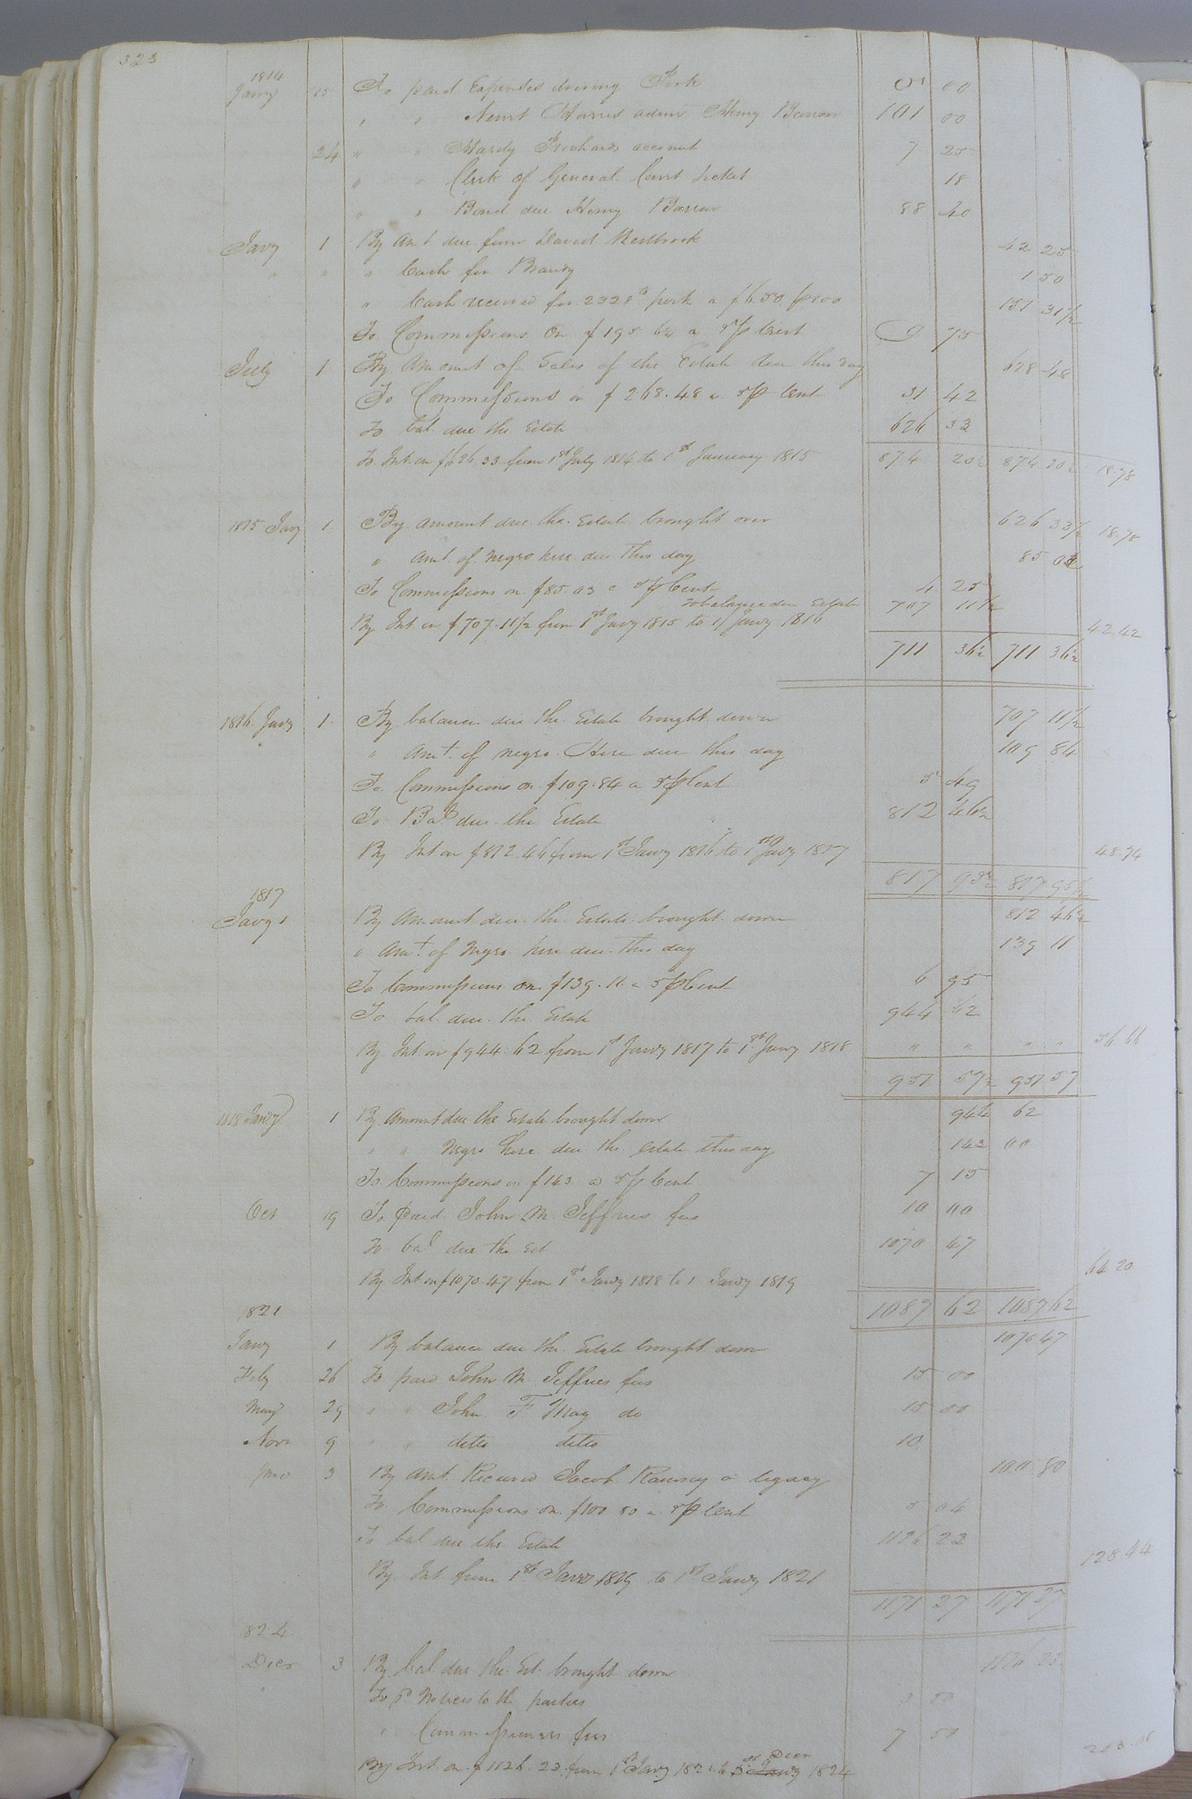 323
1814 Jany 15 To paid Expenses driving Pork 5 00
" " Newit Harris admr Henry Barrow 101 00
24 " " Hardy account 7 25
" " Clerk of General Court ticket 18
" " Bond due Henry Barrow 88 40
Jany 1 By Amt due from David Westbrook 42 25
" " " Cash for Brandy 1 50
" Cash received for 2328 lb pork a $6.50 151 31 1/2
To Commissions on $195 64 a 5 p Cent 9 75
July 1 By Amount of Sales of the Estate due this day 628 48
To Commissions on $ 268.48 a 5 p Cent 31 42
To bal. due the Estate 626 33
To Int. on $626.33 from 1st July 1814 to 1st January 1815 874 20 1/2 874 20 1/2 18.78
1815 Jany 1 By amount due the Estate brought over 626 33 1/2 18.78
" Amt. of negro hire due this day 85 03
To Commissions on $85.03 a 5 p Cent 4 25
To balance due Estate 707 11 1/2
By Int. on $707.11 1/2 from 1st Jany 1815 to 1 Jany 1816 42.42
711 36 1/2 711 36 1/2
1816 Jany 1 By balance due the Estate brought down 707 11 1/2
" Amt. of negro Hire due this day 109 84
To Commissions on $109.84 a 5 p Cent 5 49
To Bal due the Estate 812 46 1/2
By Int on $812.46 from 1st Jany 1816 to 1st Jany 1817 48.74
817 95 1/2 817 95 1/2
1817
Jany 1 By Amount due the Estate brought down 812 46 1/2
" Amt of Negro hire due this day 139 11
To Commissions on $139.11 a 5 p Cent 6 95
To bal. due the Estate 944 62
By Int on $944.62 from 1st Jany 1817 to 1st Jany 1818 " " " " 56 66
951 57 1/2 951 57
1818 Jany 1 By Amount due the Estate brought down 944 62
" " Negro hire due the estate this day 143 00
To Commissions on $143 a 5 p Cent 7 15
Oct 19 To Paid John M. Jeffries fees 10 00
To bal due the Est 1070 47
By Int on $1070.47 from 1st Jany 1818 to 1 Jany 1819 64 20
1087 62 1087 62
1821
Jany 1 By balance due the Estate brought down 1070 47
Feby 26 To paid John M. Jeffries fees 15 00
May 29 " " John F May do 15 00
Novr 9 " " ditto ditto 10
3 By Amt. Received Jacob Ramsey a legacy 100 80
To Commissions on $100 80 a 5 p Cent 5 04
To bal due the Estate 1126 23
By Int from 1st Jany 1819 to 1st Jany 1821 128.44
1171 27 1171 27
1824
Decr 3 By bal due the Est. brought down 1126 23
To pd Notices to the parties 50
" Commissioners fees 7 50
By Int. on $1126.23 from 1st Jany 1821 to 3d Decr 1824